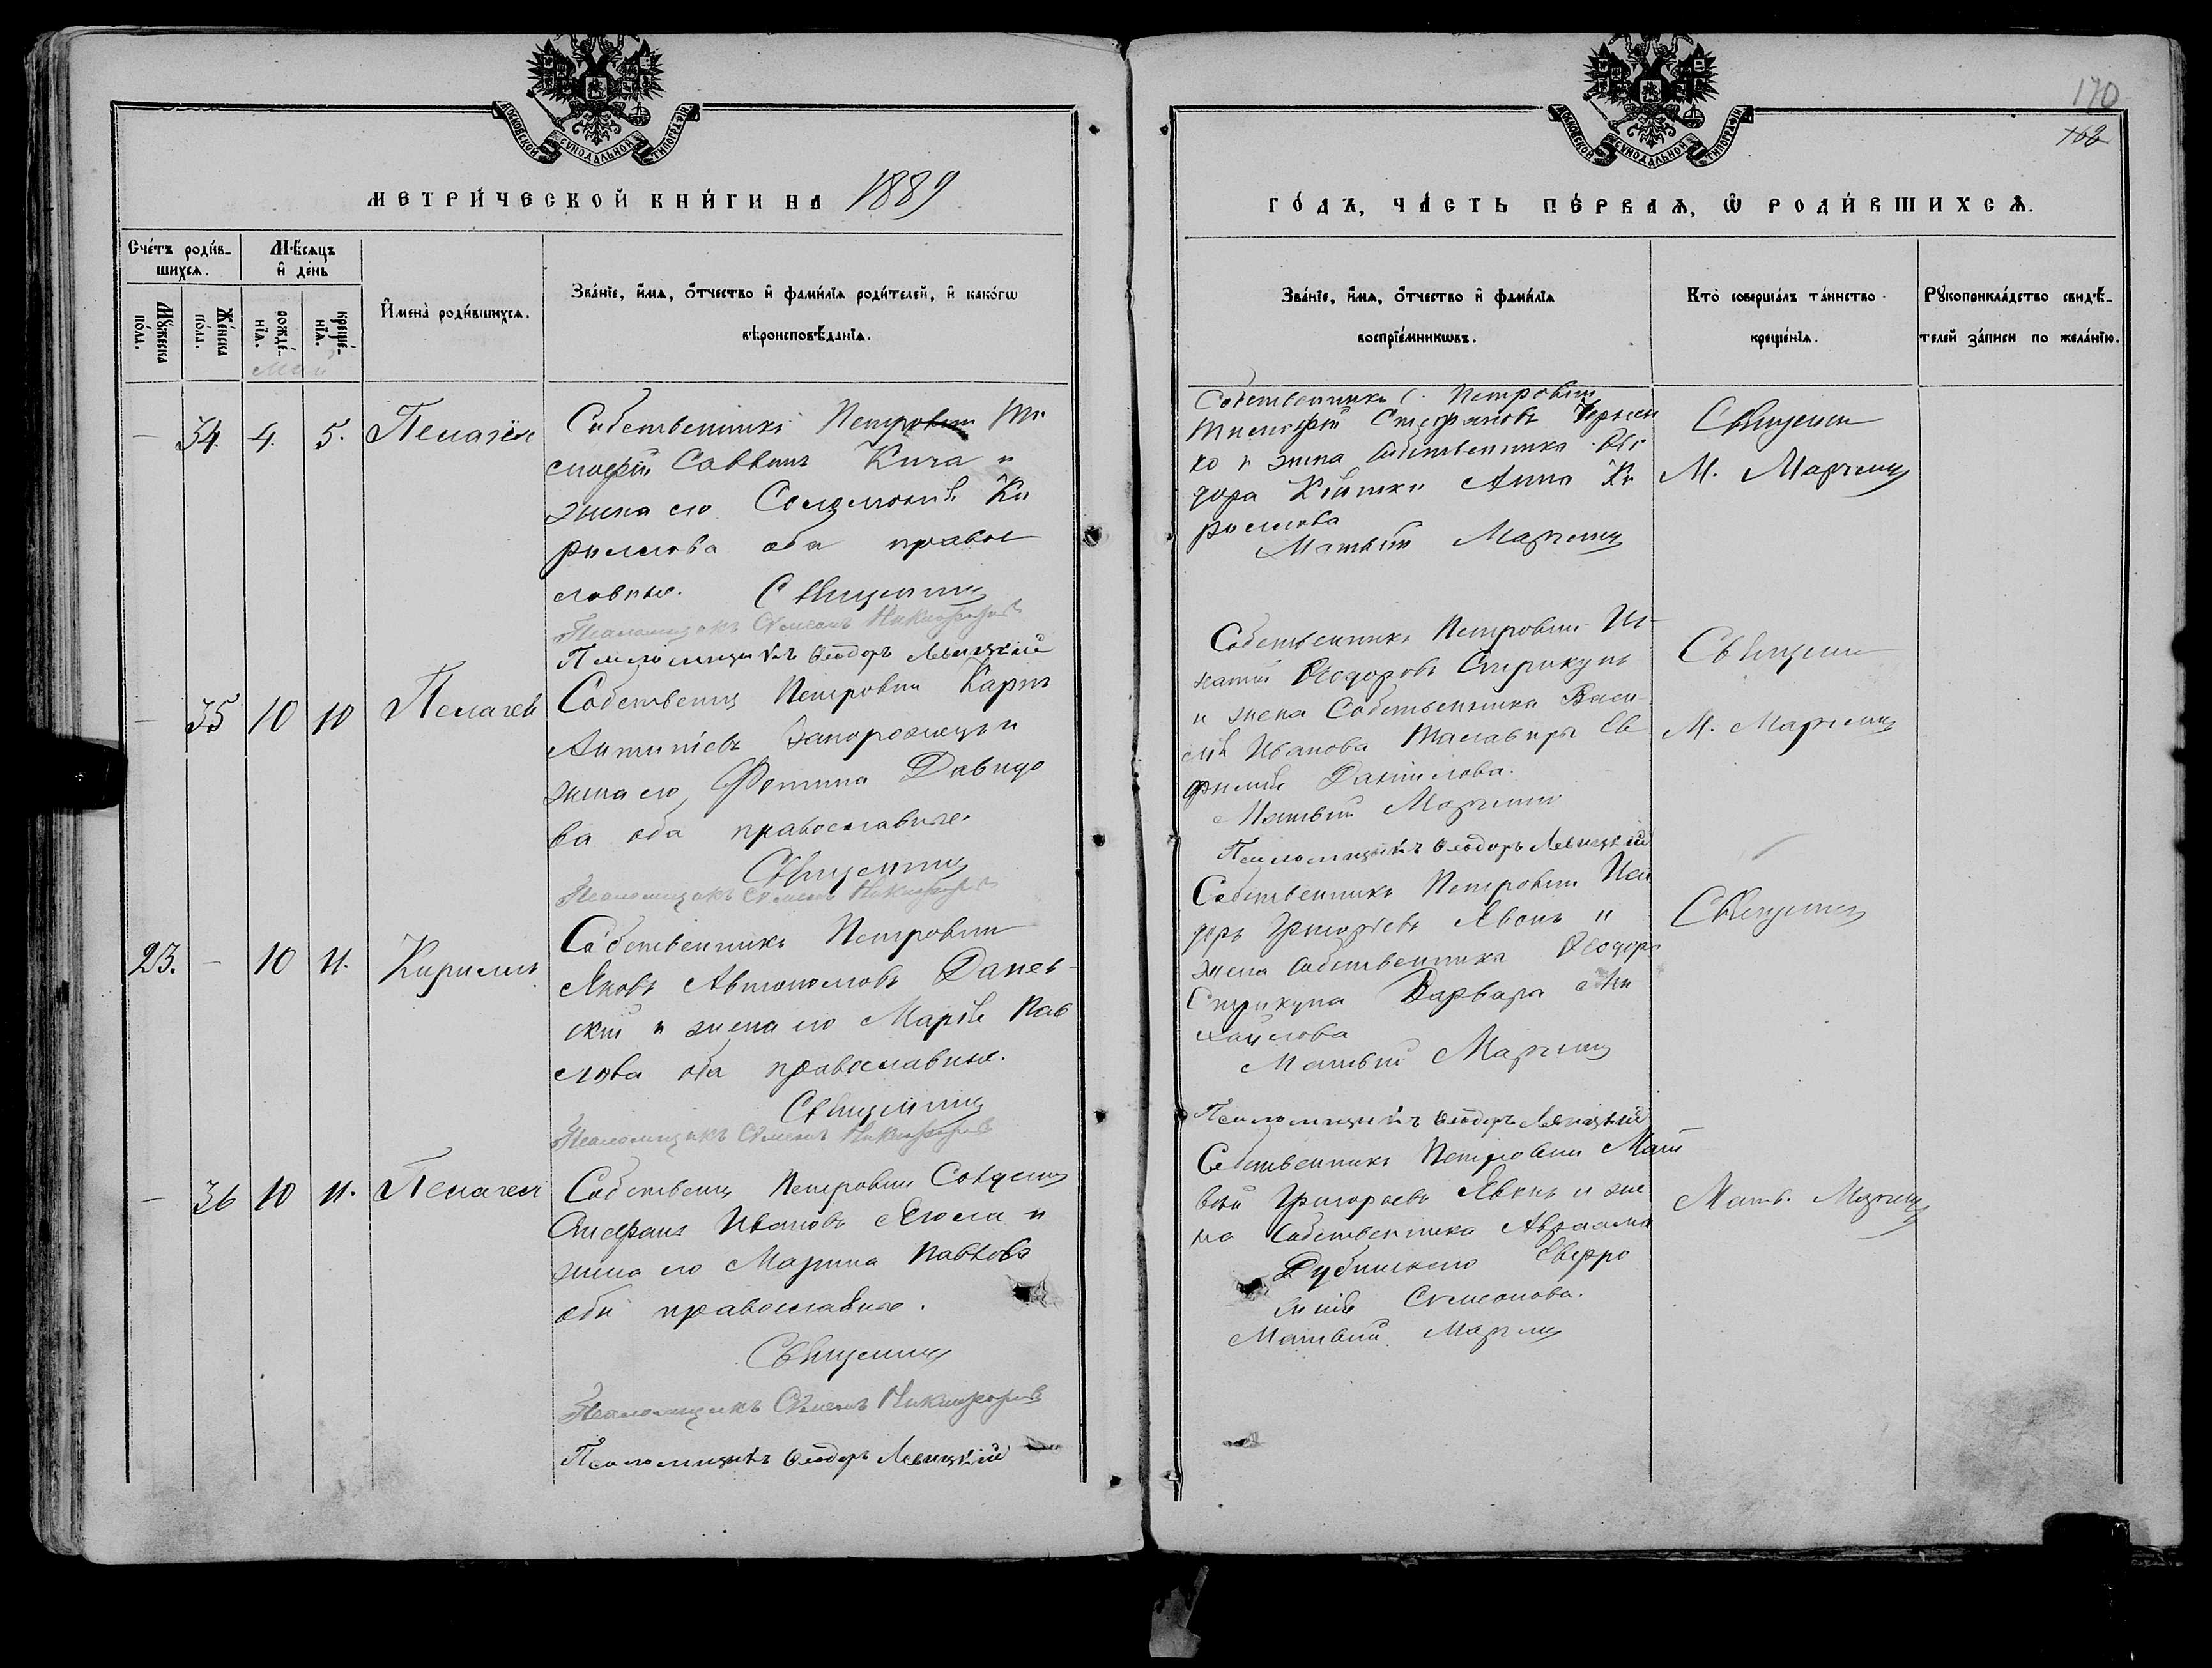 МОСКОВСКОЙ СѴНОДАЛЬНОЙ ТИПОГРАФІИ
МЕТРИ́ЧЕСКОЙ КНИ́ГИ НА 1889
Сче́тъ роди́в-
шихсѧ.
Мѣ́сѧцъ
и҆ де́нь
Мꙋ́жеска по́ла.
Же́нска по́ла.
рожде́-
нїѧ.
креще́-
нїѧ.
Май
И҆мена̀ роди́вшихсѧ.
Зва́нїе, и҆́мѧ, ѻ҆́тчество и҆ фами́лїѧ роди́телей, и҆ како́гѡ
вѣроисповѣ́данїѧ.
— 34. 4. 5. Пелагея
Собственникъ Петровки Ти
мофей Саввинъ Кича и
жена его Соломонія Ки
рилова оба право
славные. Священникъ
Псаломщикъ Симеонъ Никифоровъ
Псаломщикъ Ѳеодоръ Левицкій
— 35 10 10 Пелагея
Собственникъ Петровки Карпъ
Антиповъ Запорожецъ и
жена его Фотина Давидо
ва оба православные.
Священникъ
Псаломщикъ Симеонъ Никифоровъ
23. — 10 11. Кириллъ
Собственникъ Петровки
Яковъ Автономовъ Данев-
скій и жена его Марія Пав
лова оба православные.
Священникъ
Псаломщикъ Симеонъ Никифоровъ
— 36 10 11. Пелагея
Собственникъ Петровки
Стефанъ Ивановъ и
жена его Марина Павлова
оба православные.
Священникъ
Псаломщикъ Симеонъ Никифоровъ
Псаломщикъ Ѳеодоръ Левицкій
МОСКОВСКОЙ СѴНОДАЛЬНОЙ ТИПОГРАФІИ
170
ГО́ДЪ, ЧА́СТЬ ПЕ́РВАѦ, Ѡ҆ РОДИ́ВШИХСѦ.
Зва́нїе, и҆́мѧ, ѻ҆́тчество и҆ фами́лїѧ
воспрїе́мникѡвъ.
Кто̀ соверша́лъ та́инство
креще́нїѧ.
Рꙋкоприкла́дство свидѣ́-
телей за́писи по жела́нїю.
Собственникъ с. Петровки
Тимофей Стефановъ Чернен
ко и жена собственника Иси
дора Анна Ки
рилова
Матвѣй Марченко
Священникъ
М. Марченко
Собственникъ Петровки Иг-
натій Ѳеодоровъ Стрикунъ
и жена Собственника Васи-
лія Иванова Талавиры Ев
фимія Даніилова.
Матвѣй Марченко
Псаломщикъ Ѳеодоръ Левицкій
Священникъ
М. Марченко
Собственникъ Петровки Иси
доръ Григорьевъ Явонъ и
жена собственника Ѳеодора
Стрикуна Варвара Ми
хайлова
Матвѣй Марченко
Псаломщикъ Ѳеодоръ Левицкій
Священникъ
Собственникъ Петровки Мат
вѣй Григорьевъ Явонъ и же
на Собственника Авраама
Дубинскаго Евфро
синія Симеонова.
Матвѣй Марченко
Матв. Марченко